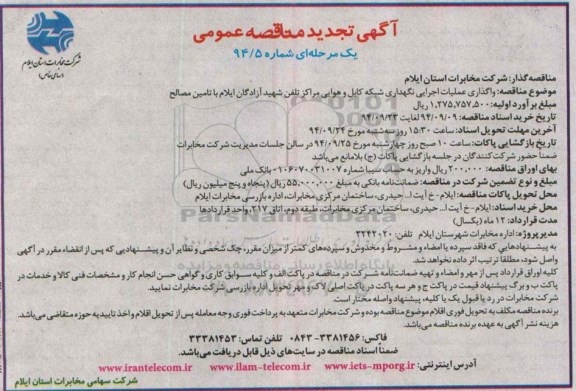 آگهی تجدید مناقصه عمومی
یک مرحله‌ای شماره ۹۴/۵
شرکت مخابرات استان ایلام
(سهامی خاص)
مناقصه گذار: شرکت مخابرات استان ایلام
موضوع مناقصه: واگذاری عملیات اجرایی نگهداری شبکه کابل و هوایی مراکز تلفن شهید آزادگان ایلام با تامین مصالح
مبلغ برآورد اولیه: ۱,۲۷۵,۷۵۷,۵۰۰ ریال
تاریخ خرید اسناد مناقصه: ۹۴/۰۹/۰۹ لغایت ۹۴/۰۹/۲۳
آخرین مهلت تحویل اسناد: ساعت ۱۵:۳۰ روز سه‌شنبه مورخ ۹۴/۰۹/۲۴
تاریخ بازگشایی پاکات: ساعت ۱۰ صبح روز چهارشنبه مورخ ۹۴/۰۹/۲۵ در سالن جلسات مدیریت شرکت مخابرات
ضمناً حضور شرکت کنندگان در جلسه بازگشایی پاکات (ج) بلامانع می‌باشد
بهای اوراق مناقصه: ۲۰۰,۰۰۰ ریال واریز به حساب سیبا شماره ۰۱۰۶۰۷۰۳۱۰۰۷ بانک ملی
مبلغ و نوع تضمین شرکت در مناقصه: ضمانت‌نامه بانکی به مبلغ ۵۵,۰۰۰,۰۰۰ ریال (پنجاه و پنج میلیون ریال)
محل تحویل پاکات مناقصه: ایلام - خ آیت ا... حیدری، ساختمان مرکزی مخابرات، اداره بازرسی مخابرات ایلام
محل خرید اسناد: ایلام - خ آیت ا... حیدری، ساختمان مرکزی مخابرات، طبقه دوم، اتاق ۲۱۷، واحد قراردادها
مدت قرارداد: ۱۲ ماه (یکسال)
مدیر پروژه: اداره مخابرات شهرستان ایلام تلفن: ۳۲۴۲۰۲۰
به پیشنهادهایی که فاقد سپرده یا امضاء و مشروط و مخدوش و سپرده‌های کمتر از میزان مقرر، چک شخصی و نظایر آن و پیشنهادیی که پس از انقضاء مقرر در آگهی
واصل شود، مطلقا ترتیب اثر داده نخواهد شد.
کلیه اوراق قرارداد پس از مهر و امضاء و تهیه ضمانت‌نامه شرکت در مناقصه در پاکت الف و کلیه سوابق کاری و گواهی حسن انجام کار و مشخصات فنی کالا و خدمات در
پاکت ب و برگ پیشنهاد قیمت در پاکت ج و هر سه پاکت در پاکت اصلی لاک و مهر تحویل اداره بازرسی شرکت مخابرات نمایید.
شرکت مخابرات در رد یا قبول یک یا کلیه پیشنهاد واصله مختار است.
برنده مناقصه مکلف به تحویل فوری اقلام موضوع مناقصه بوده و شرکت مخابرات متعهد به پرداخت فوری وجه معامله پس از تحویل اقلام و اخذ تاییدیه حوزه متقاضی می‌باشد.
هزینه نشر آگهی به عهده برنده مناقصه می‌باشد.
فاکس: ۳۳۳۸۱۴۵۶-۰۸۴۳ تلفن تماس: ۳۳۳۸۱۴۵۳
ضمناً اسناد مناقصه در سایت‌های ذیل قابل دریافت می‌باشد.
آدرس اینترنتی: www.irantelecom.ir www.ilam-telecom.ir www.iets-mporg.ir
شرکت سهامی مخابرات استان ایلام